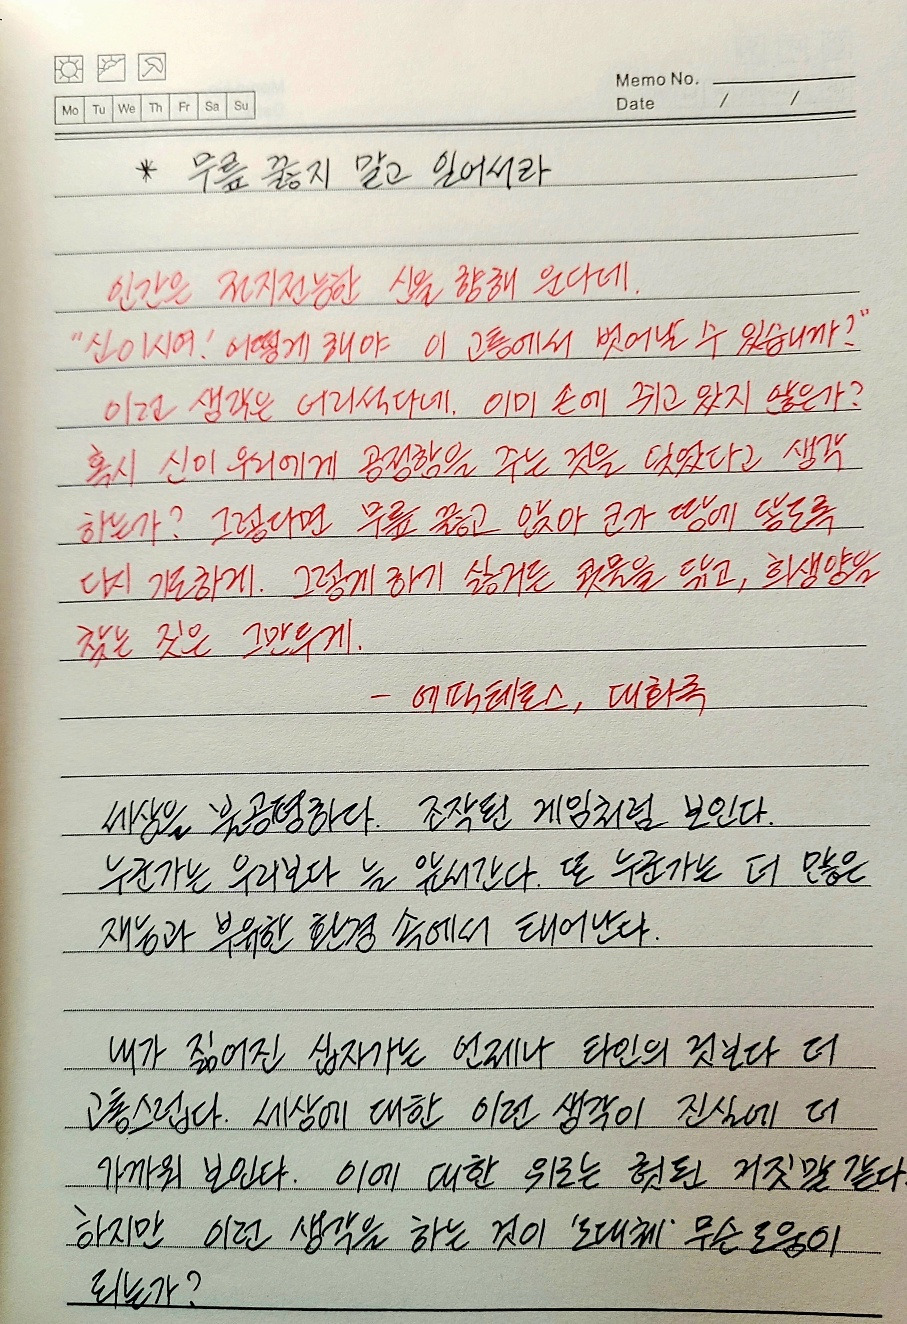 Memo No.
Mo Tu We Th Fr Sa Su
Date / /
* 무릎 꿇지 말고 일어서라
인간은 전지전능한 신을 향해 운다네.
"신이시여! 어떻게 해야 이 고통에서 벗어날 수 있습니까?"
이런 생각은 어리석다네. 이미 손에 쥐고 있지 않은가?
혹시 신이 우리에게 공정함을 주는 것을 잊었다고 생각
하는가? 그렇다면 무릎 꿇고 앉아 코가 땅에 닿도록
다시 기도하게. 그렇게 하기 싫거든 콧물을 닦고, 희생양을
찾는 짓은 그만두게.
- 에픽테토스, 대화록
세상은 불공평하다. 조작된 게임처럼 보인다.
누군가는 우리보다 늘 앞서간다. 또 누군가는 더 많은
재능과 부유한 환경 속에서 태어난다.
내가 짊어진 십자가는 언제나 타인의 것보다 더
고통스럽다. 세상에 대한 이런 생각이 진실에 더
가까워 보인다. 이에 대한 위로는 헛된 거짓말 같다.
하지만 이런 생각을 하는 것이 '도대체' 무슨 도움이
되는가?